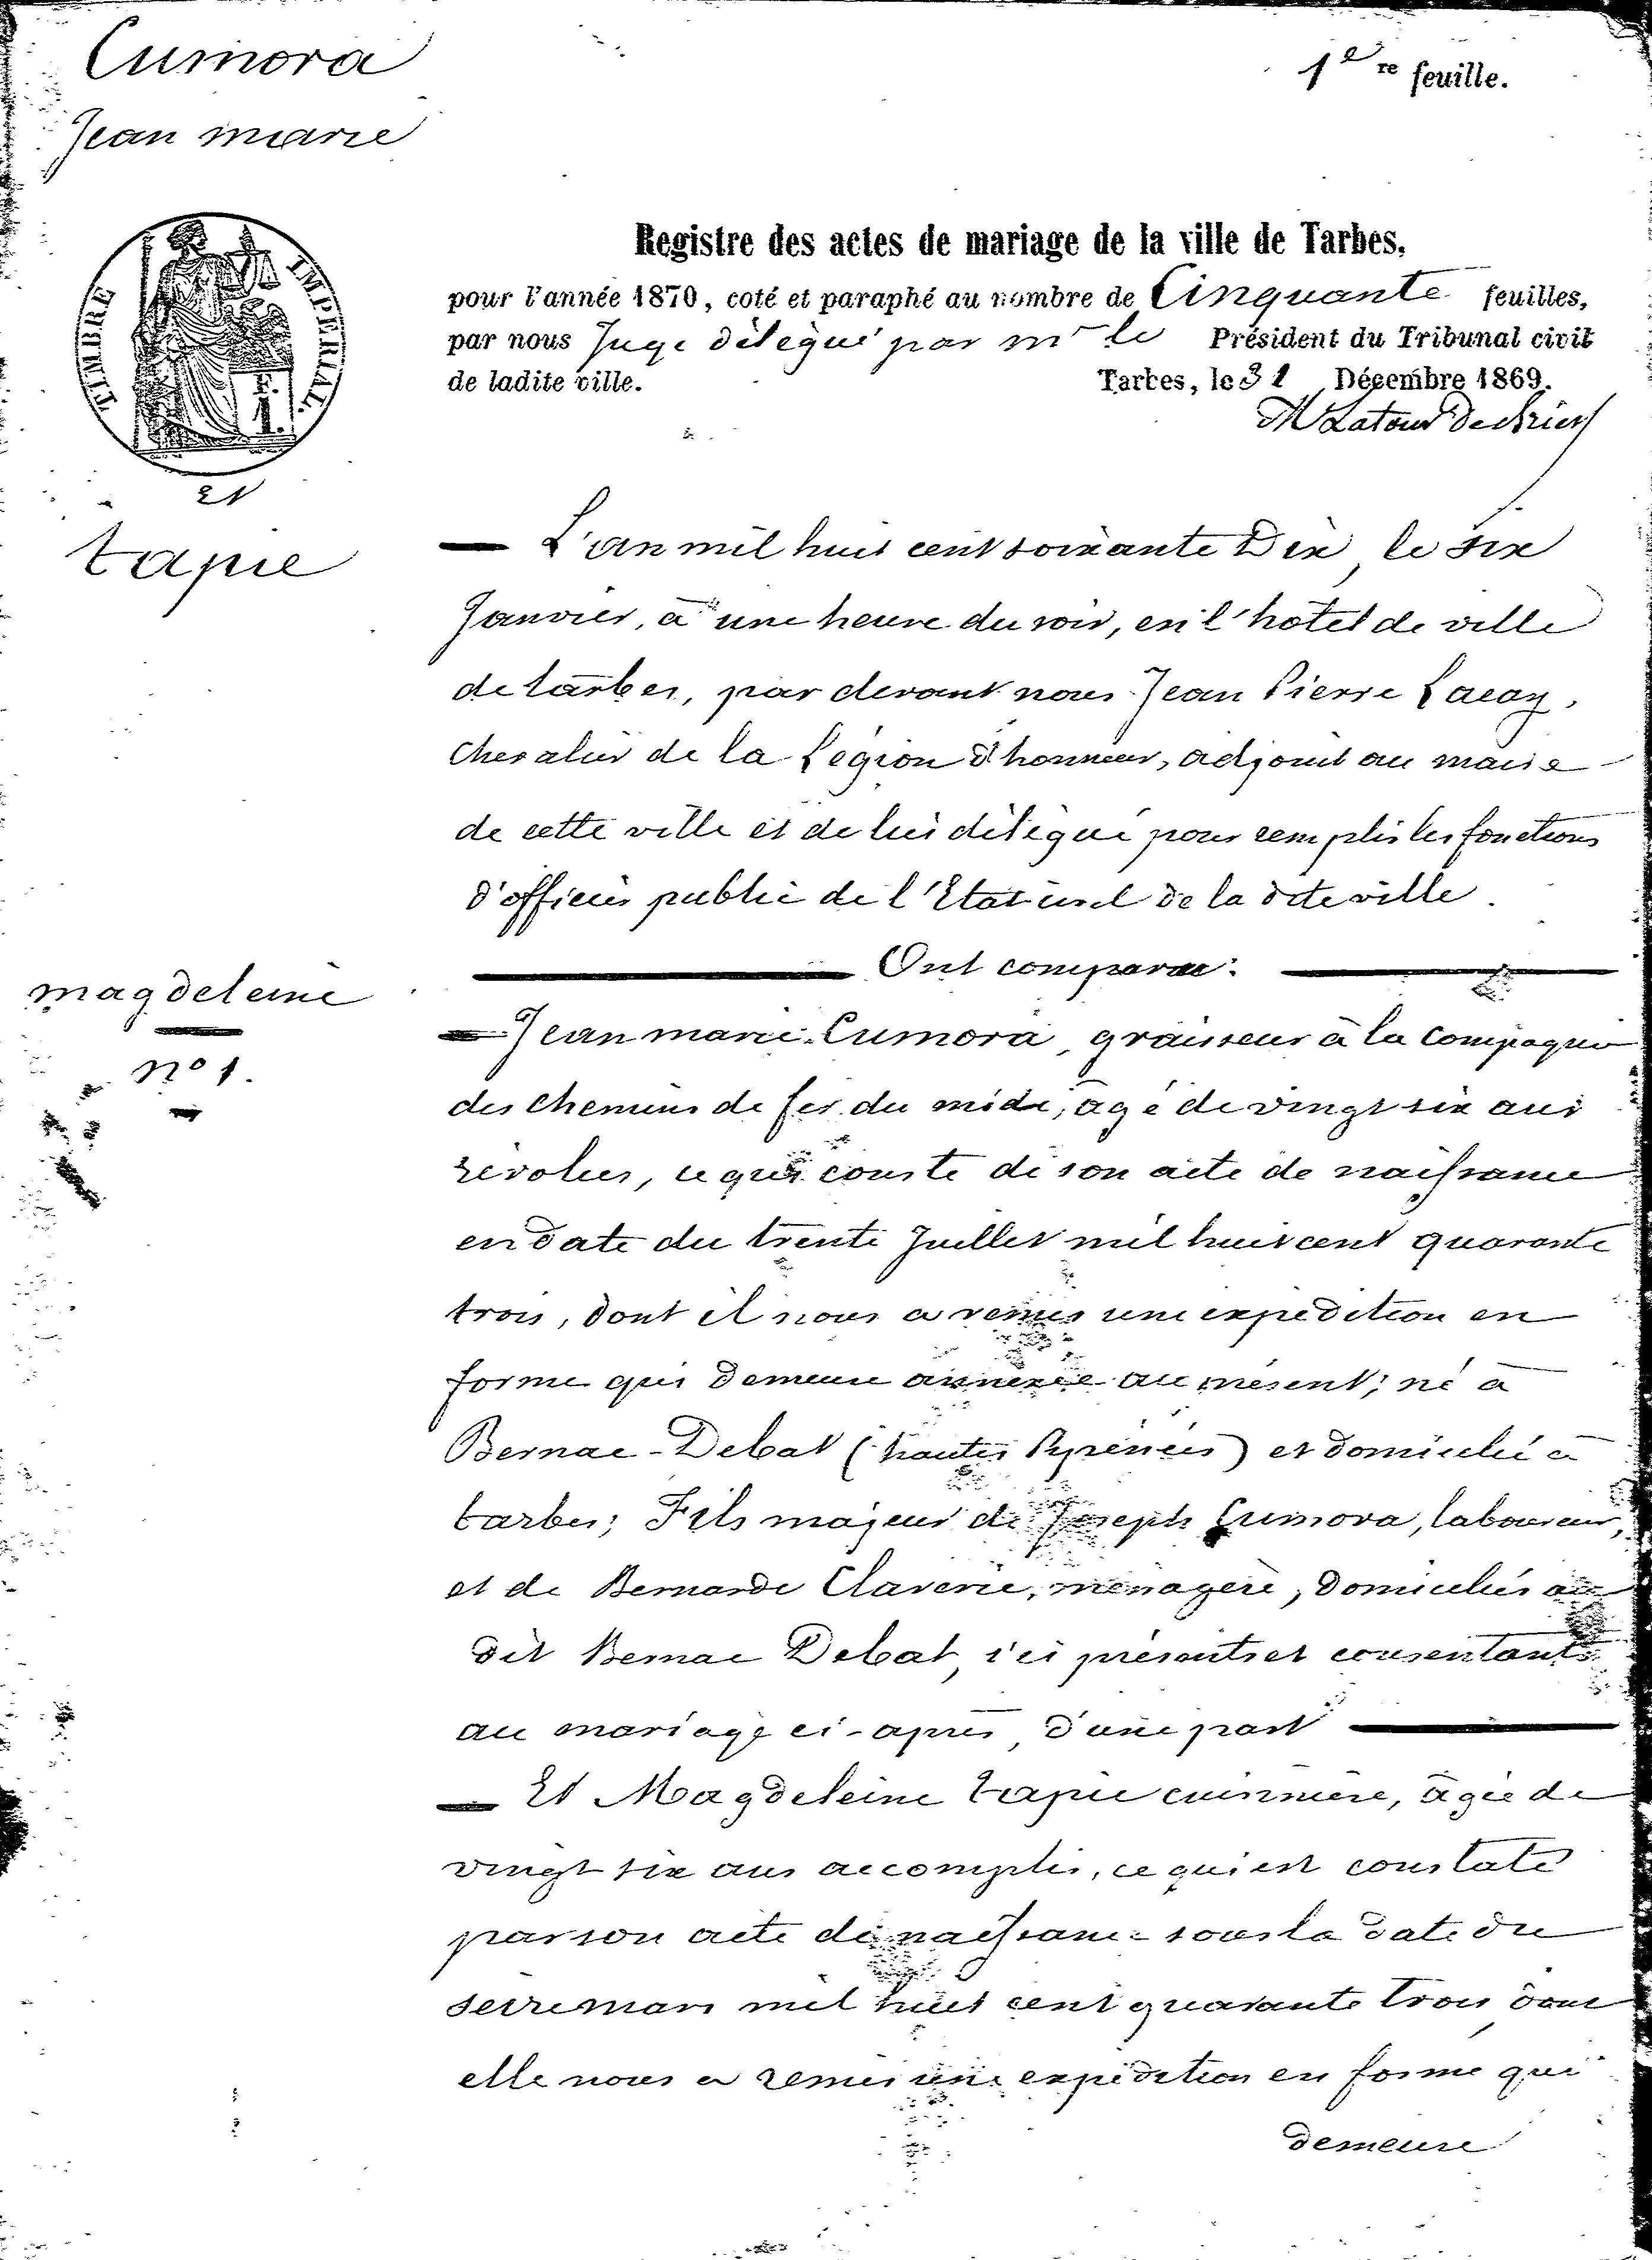 Cumora
Jean marie
1re feuille.
TIMBRE IMPERIAL.
F.
1.
Registre des actes de mariage de la ville de Tarbes,
pour l'année 1870, coté et paraphé au nombre de Cinquante feuilles,
par nous Juge délégué par mr le Président du Tribunal civil
de ladite ville. Tarbes, le 31 Décembre 1869.
et
tapie
magdeleine
no 1.
L'an mil huit cent soixante Dix, le six
Janvier, à une heure du soir, en l'hôtel de ville
de tarbes, par devant nous Jean Pierre Lacay,
Chevalier de la Légion d'honneur, adjoint au maire
de cette ville et de lui délégué pour remplir les fonctions
d'officier public de l'Etat civil de la dite ville.
Ont comparu:
Jean marie Cumora, graisseur à la Compagnie
des chemins de fer du midi, âgé de vingt six ans
révolus, ce qui conste de son acte de naissance
en date du trente Juillet mil huit cent quarante
trois, dont il nous a remis une expédition en
forme qui demeure annexée au présent; né à
Bernac-Debat (hautes Pyrénées) et domicilié à
tarbes; Fils majeur de Joseph Cumora, laboureur,
et de Bernarde Claverie, ménagère, domiciliés au
dit Bernac Debat, ici présents et consentants
au mariage ci-après, d'une part
Et Magdeleine tapie cuisinière, âgée de
vingt six ans accomplis, ce qui est constaté
par son acte de naissance sous la date du
seize mars mil huit cent quarante trois dont
elle nous a remis une expédition en forme qui
demeure